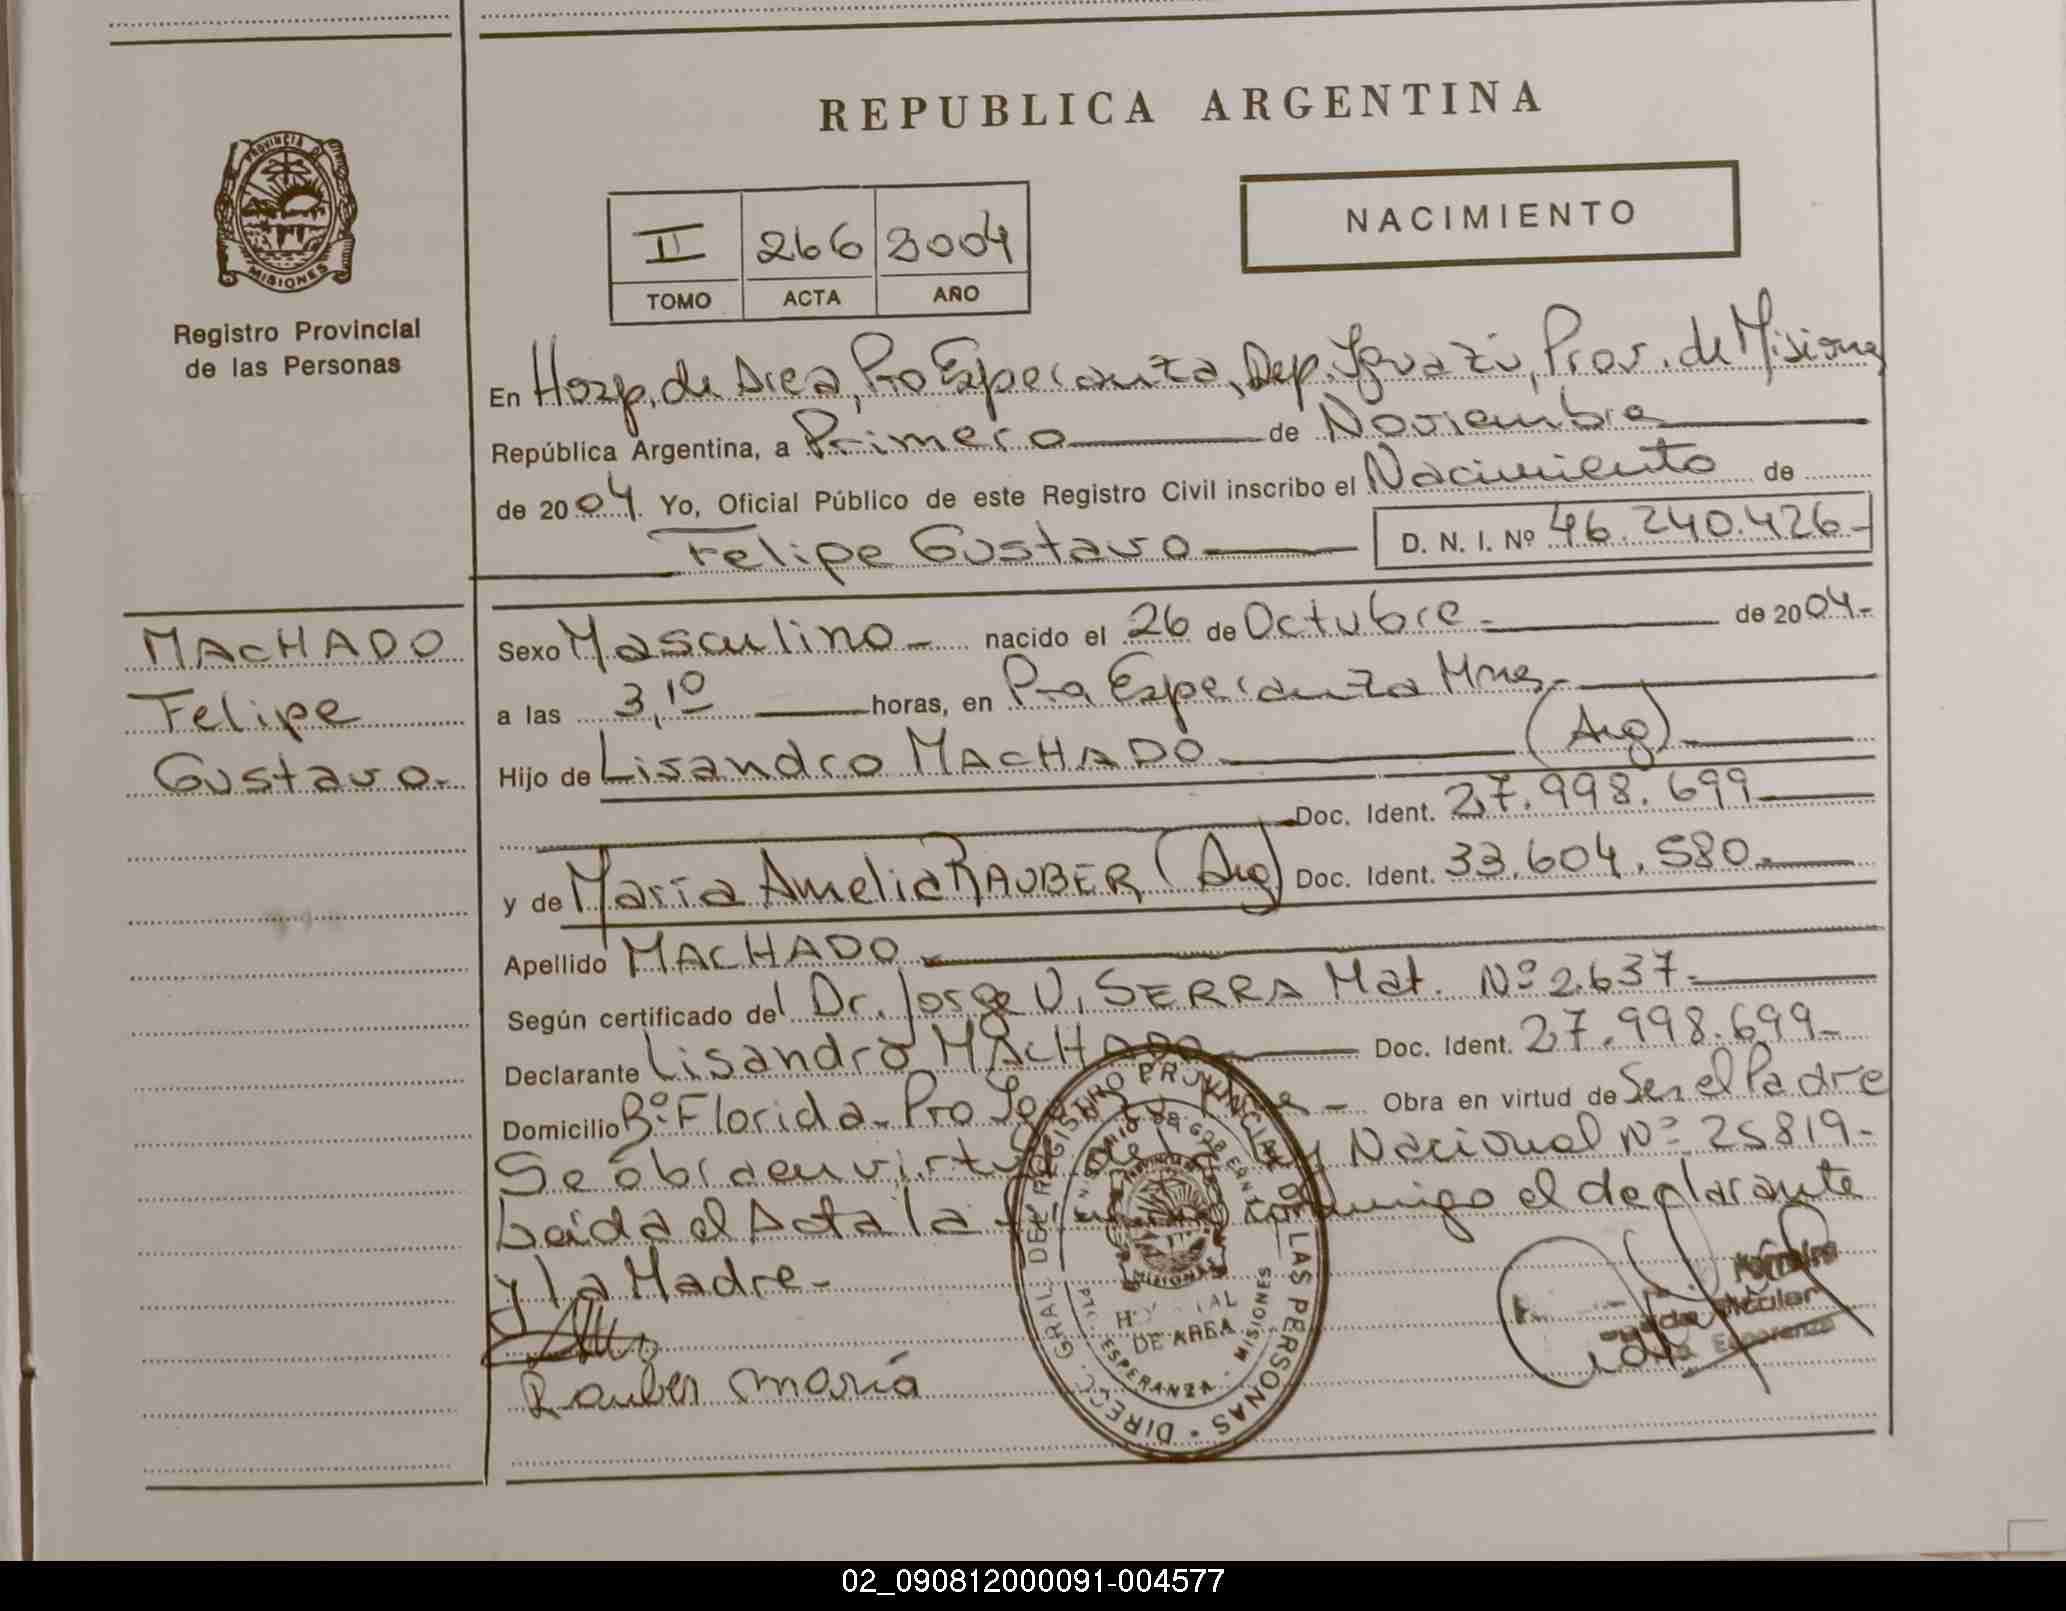 REPUBLICA ARGENTINA
PROVINCIA DE
MISIONES
Registro Provincial
de las Personas
II 266 2004
TOMO ACTA AÑO
NACIMIENTO
En Hosp. de Area, Pto Esperanza, Dep. Iguazú, Prov. de Misiones
República Argentina, a Primero de Noviembre
de 2004. Yo, Oficial Público de este Registro Civil inscribo el Nacimiento de
Felipe Gustavo D. N. I. Nº 46.240.426-
MACHADO
Felipe
Gustavo.-
Sexo Masculino- nacido el 26 de Octubre.- de 2004.-
a las 3,10 horas, en Pto Esperanza Mnes-
Hijo de Lisandro MACHADO (Arg)
Doc. Ident. 27.998.699
y de María Amelia RAUBER (Arg) Doc. Ident. 33.604.580.-
Apellido MACHADO.
Según certificado del Dr. Jorge V. SERRA Mat. Nº 2.637-
Declarante Lisandro MACHADO Doc. Ident. 27.998.699-
Domicilio Bº Florida- Pto - Obra en virtud de Ser el Padre
Se obra en virtud de la Ley Nacional Nº 25819-
Leída el Acta la conmigo el declarante
y la Madre-
Rauber María
DIRECC. GRAL. DEL REGISTRO PROVINCIAL DE LAS PERSONAS
MISIONES
DE AREA
ESPERANZA - MISIONES
Titular
Esperanza
02_090812000091-004577